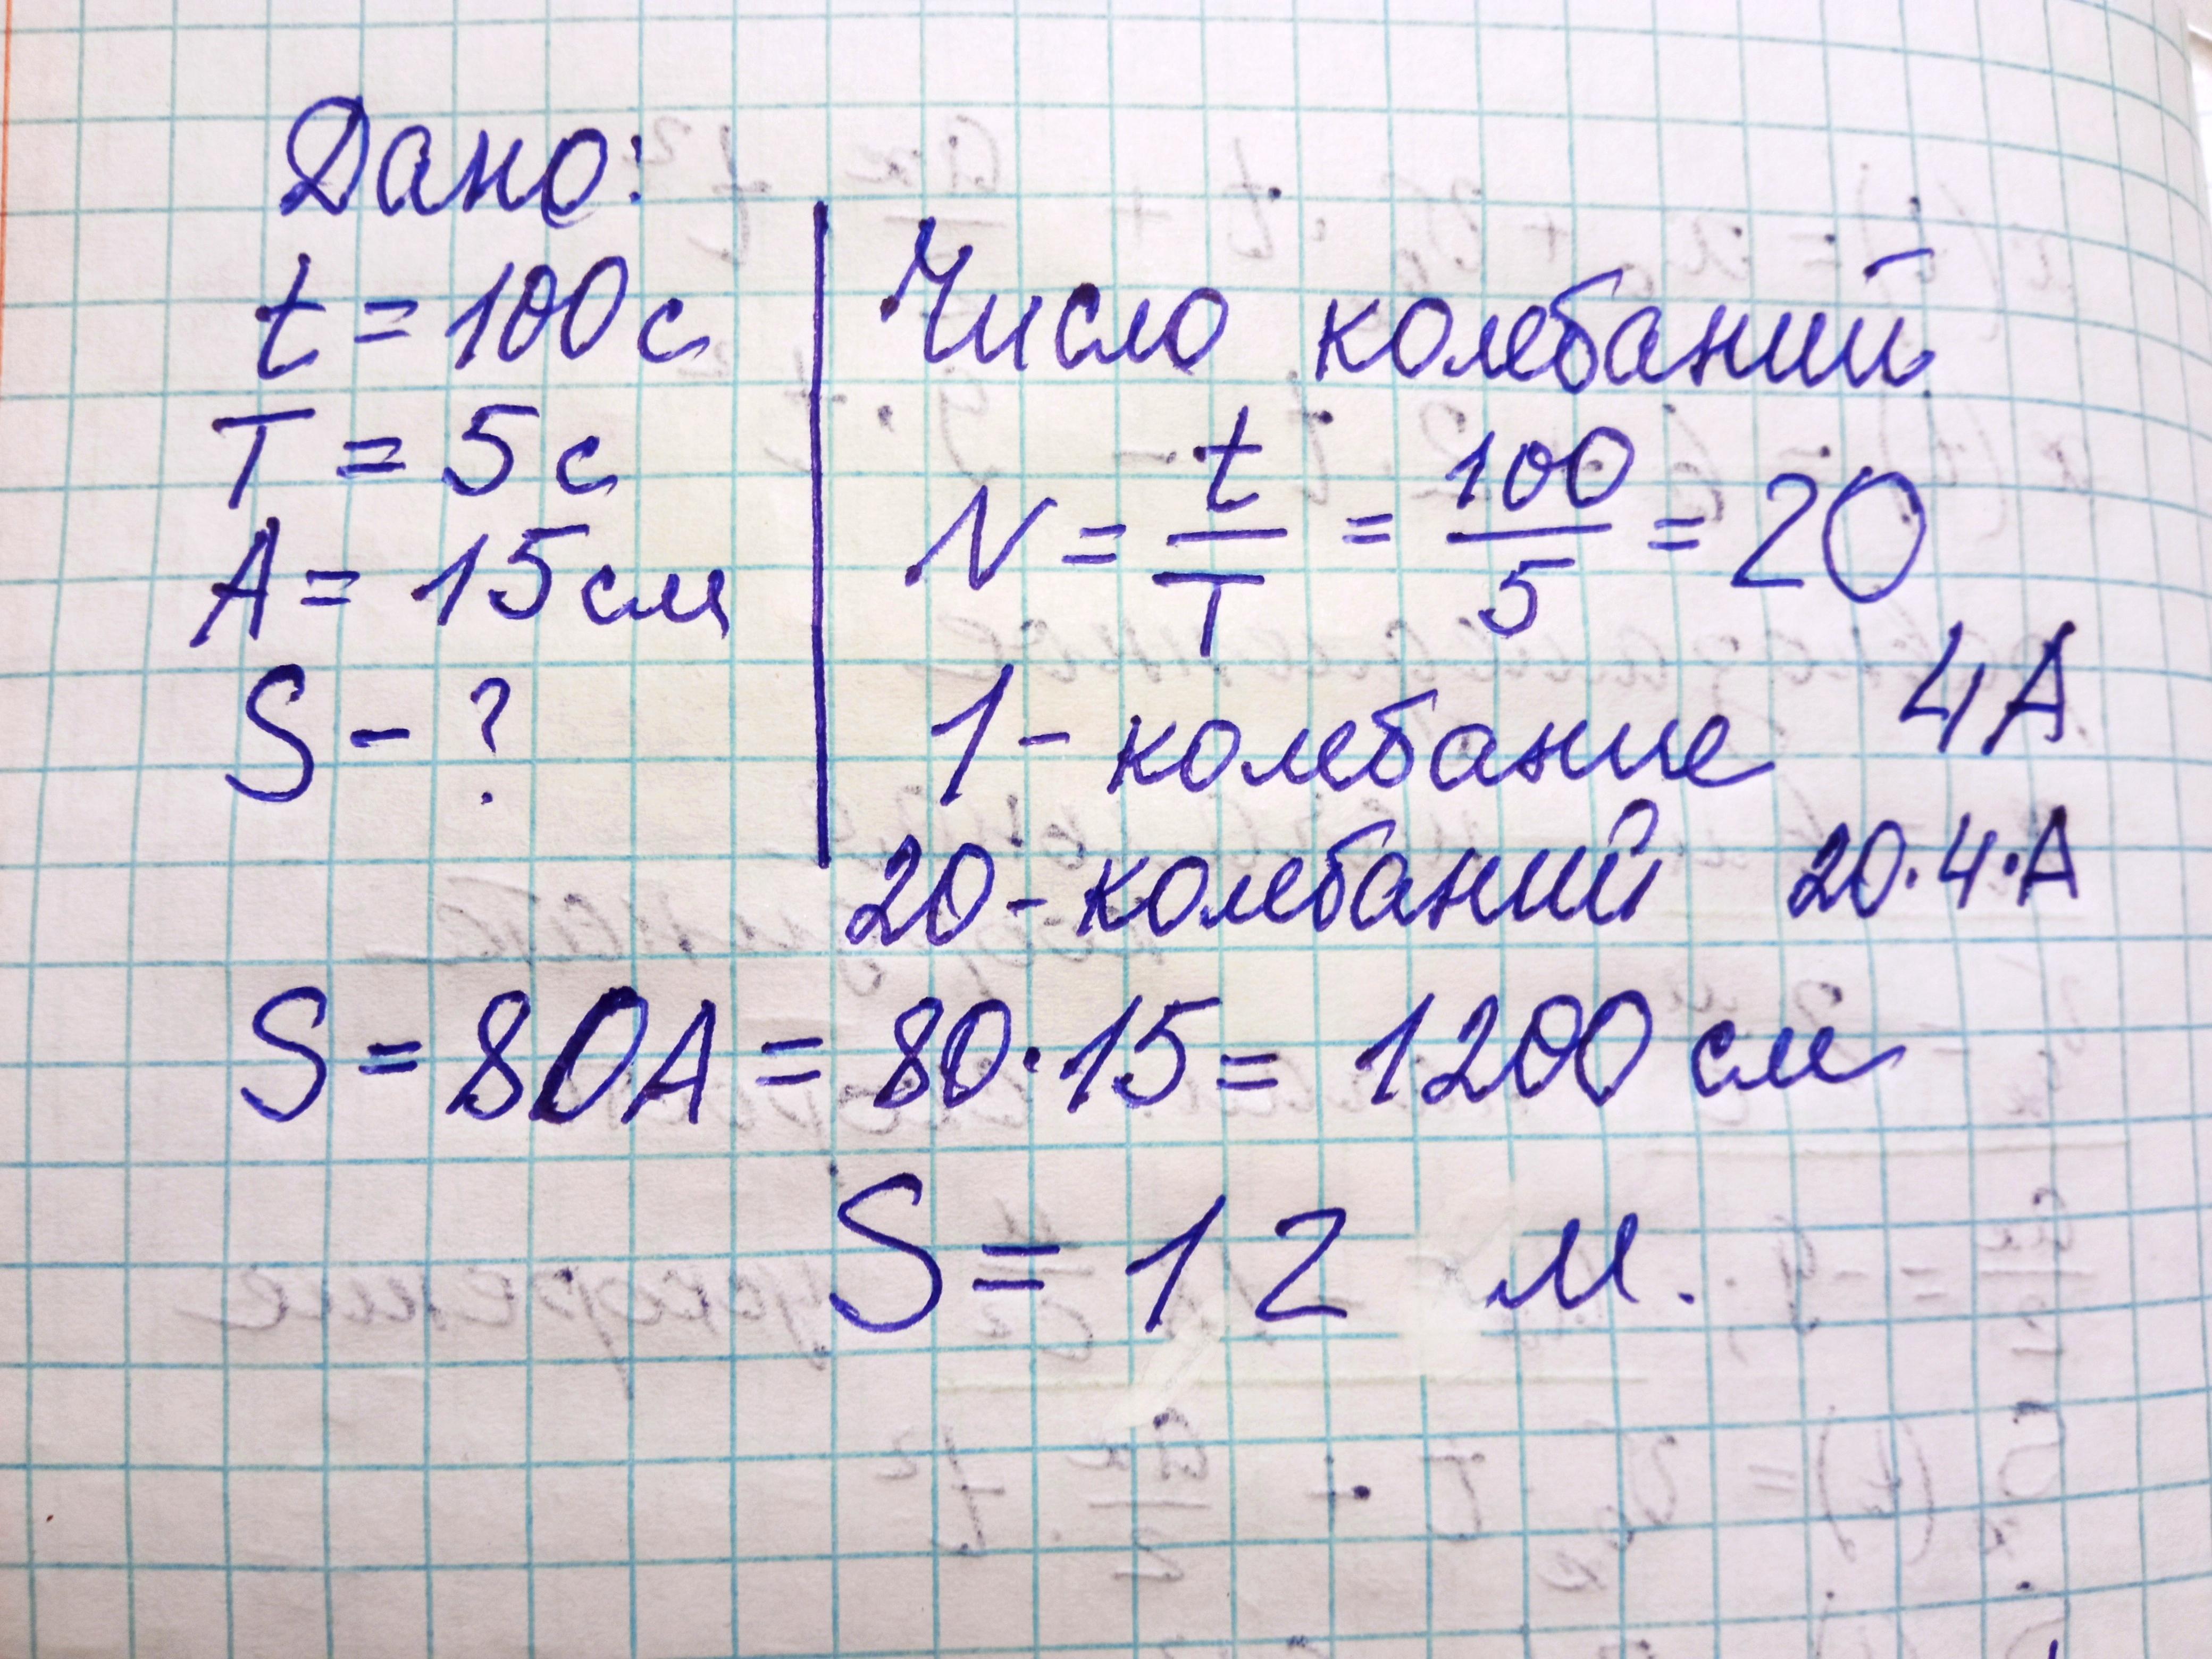 Дано:
t = 100 с
T = 5 с
A = 15 см
S - ?
Число колебаний
N = t/T = 100/5 = 20
1 - колебание 4А
20 - колебаний 20·4·А
S = 80A = 80·15 = 1200 см
S = 12 м.